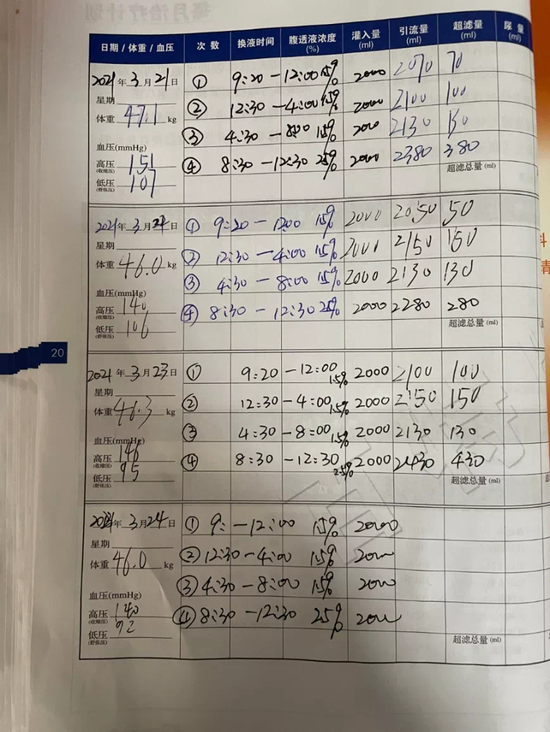 日期 / 体重 / 血压 次 数 换液时间 腹透液浓度(%) 灌入量(ml) 引流量(ml) 超滤量(ml) 尿 量(ml)
2021 年 3 月 21 日 ① 9:20 - 12:00 1.5% 2000 2070 70
星期 ② 12:30 - 4:00 1.5% 2000 2100 100
体重 47.1 kg ③ 4:30 - 8:00 1.5% 2000 2130 130
血压(mmHg) ④ 8:30 - 12:30 2.5% 2000 2380 380
高压(收缩压) 151 超滤总量 (ml)
低压(舒张压) 107
2021 年 3 月 22 日 ① 9:20 - 12:00 1.5% 2000 2050 50
星期 ② 12:30 - 4:00 1.5% 2000 2150 150
体重 46.0 kg ③ 4:30 - 8:00 1.5% 2000 2130 130
血压(mmHg) ④ 8:30 - 12:30 2.5% 2000 2280 280
高压(收缩压) 140 超滤总量 (ml)
低压(舒张压) 106
20
2021 年 3 月 23 日 ① 9:20 - 12:00 1.5% 2000 2100 100
星期 ② 12:30 - 4:00 1.5% 2000 2150 150
体重 46.3 kg ③ 4:30 - 8:00 1.5% 2000 2130 130
血压(mmHg) ④ 8:30 - 12:30 2.5% 2000 2430 430
高压(收缩压) 146 超滤总量 (ml)
低压(舒张压) 95
2021 年 3 月 24 日 ① 9: - 12:00 1.5% 2000
星期 ② 12:30 - 4:00 1.5% 2000
体重 46.0 kg ③ 4:30 - 8:00 1.5% 2000
血压(mmHg) ④ 8:30 - 12:30 2.5% 2000
高压(收缩压) 140
低压(舒张压) 92 超滤总量 (ml)